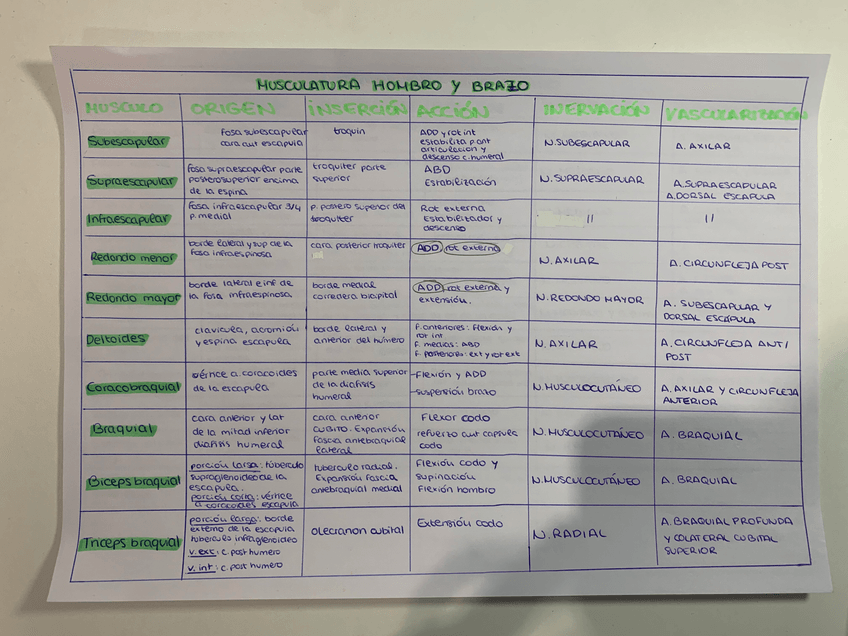 MUSCULATURA HOMBRO Y BRAZO
MUSCULO ORIGEN INSERCIÓN ACCIÓN INERVACIÓN VASCULARIZACIÓN
Subescapular
fosa subescapular
cara ant escapula
troquin
ADD y rot int
estabilita p ant
articulacion y
descenso c. humeral
N. SUBESCAPULAR
A. AXILAR
Supraescapular
fosa supraescapular parte
posterosuperior encima
de la espina
troquiter parte
superior
ABD
Estabilización
N. SUPRAESCAPULAR
A. SUPRAESCAPULAR
A. DORSAL ESCAPULA
Infraescapular
fosa infraescapular 3/4
p. medial
p. postero superior del
troquiter
Rot externa
Estabilizador y
descenso
||
||
Redondo menor
borde lateral y sup de la
fosa infraespinosa
cara posterior troquiter
ADD, rot externa
N. AXILAR
A. CIRCUNFLEJA POST
Redondo mayor
borde lateral e inf de
la fosa infraespinosa
borde medial
corredera bicipital
ADD rot externa y
extensión.
N. REDONDO MAYOR
A. SUBESCAPULAR Y
DORSAL ESCÁPULA
Deltoides
clavicula, acromión
y espina escapula
borde lateral y
anterior del húmero
F. anteriores: flexión y
rot int
F. medias: ABD
F. posteriores: ext y rot ext
N. AXILAR
A. CIRCUNFLEJA ANT/
POST
Coracobraquial
vérnice a coracoides
de la escapula
parte media superior
de la diafisis
humeral
-Flexión y ADD
-suspensión brazo
N. MUSCULOCUTÁNEO
A. AXILAR Y CIRCUNFLEJA
ANTERIOR
Braquial
cara anterior y lat
de la mitad inferior
diafisis humeral
cara anterior
CUBITO. Expansión
fascia antebraquial
lateral
Flexor codo
refuerzo ant capsula
codo
N. MUSCULOCUTÁNEO
A. BRAQUIAL
Biceps braquial
porción larga: tubérculo
supraglenoideo de la
escapula.
porción corta: vérnice
a coracoides escapula
tuberculo radial.
Expansión fascia
antebraquial medial
Flexión codo y
supinación
Flexión hombro
N. MUSCULOCUTÁNEO
A. BRAQUIAL
Triceps braquial
porción larga: borde
externo de la escapula
tuberculo infraglenoideo
v. ext: c. post humero
v. int: c. post humero
olecranon cubital
Extensión codo
N. RADIAL
A. BRAQUIAL PROFUNDA
Y COLATERAL CUBITAL
SUPERIOR